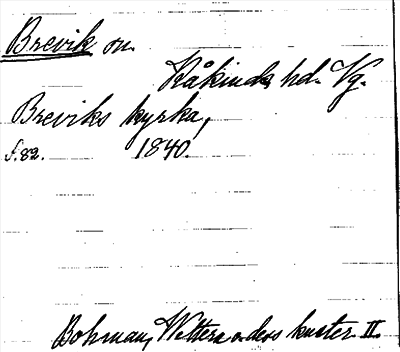 Brevik sn.
Kåkinds hd. Vg.
Breviks kyrka,
s. 82. 1840.
Bohman, Wettern o. dess kuster II.